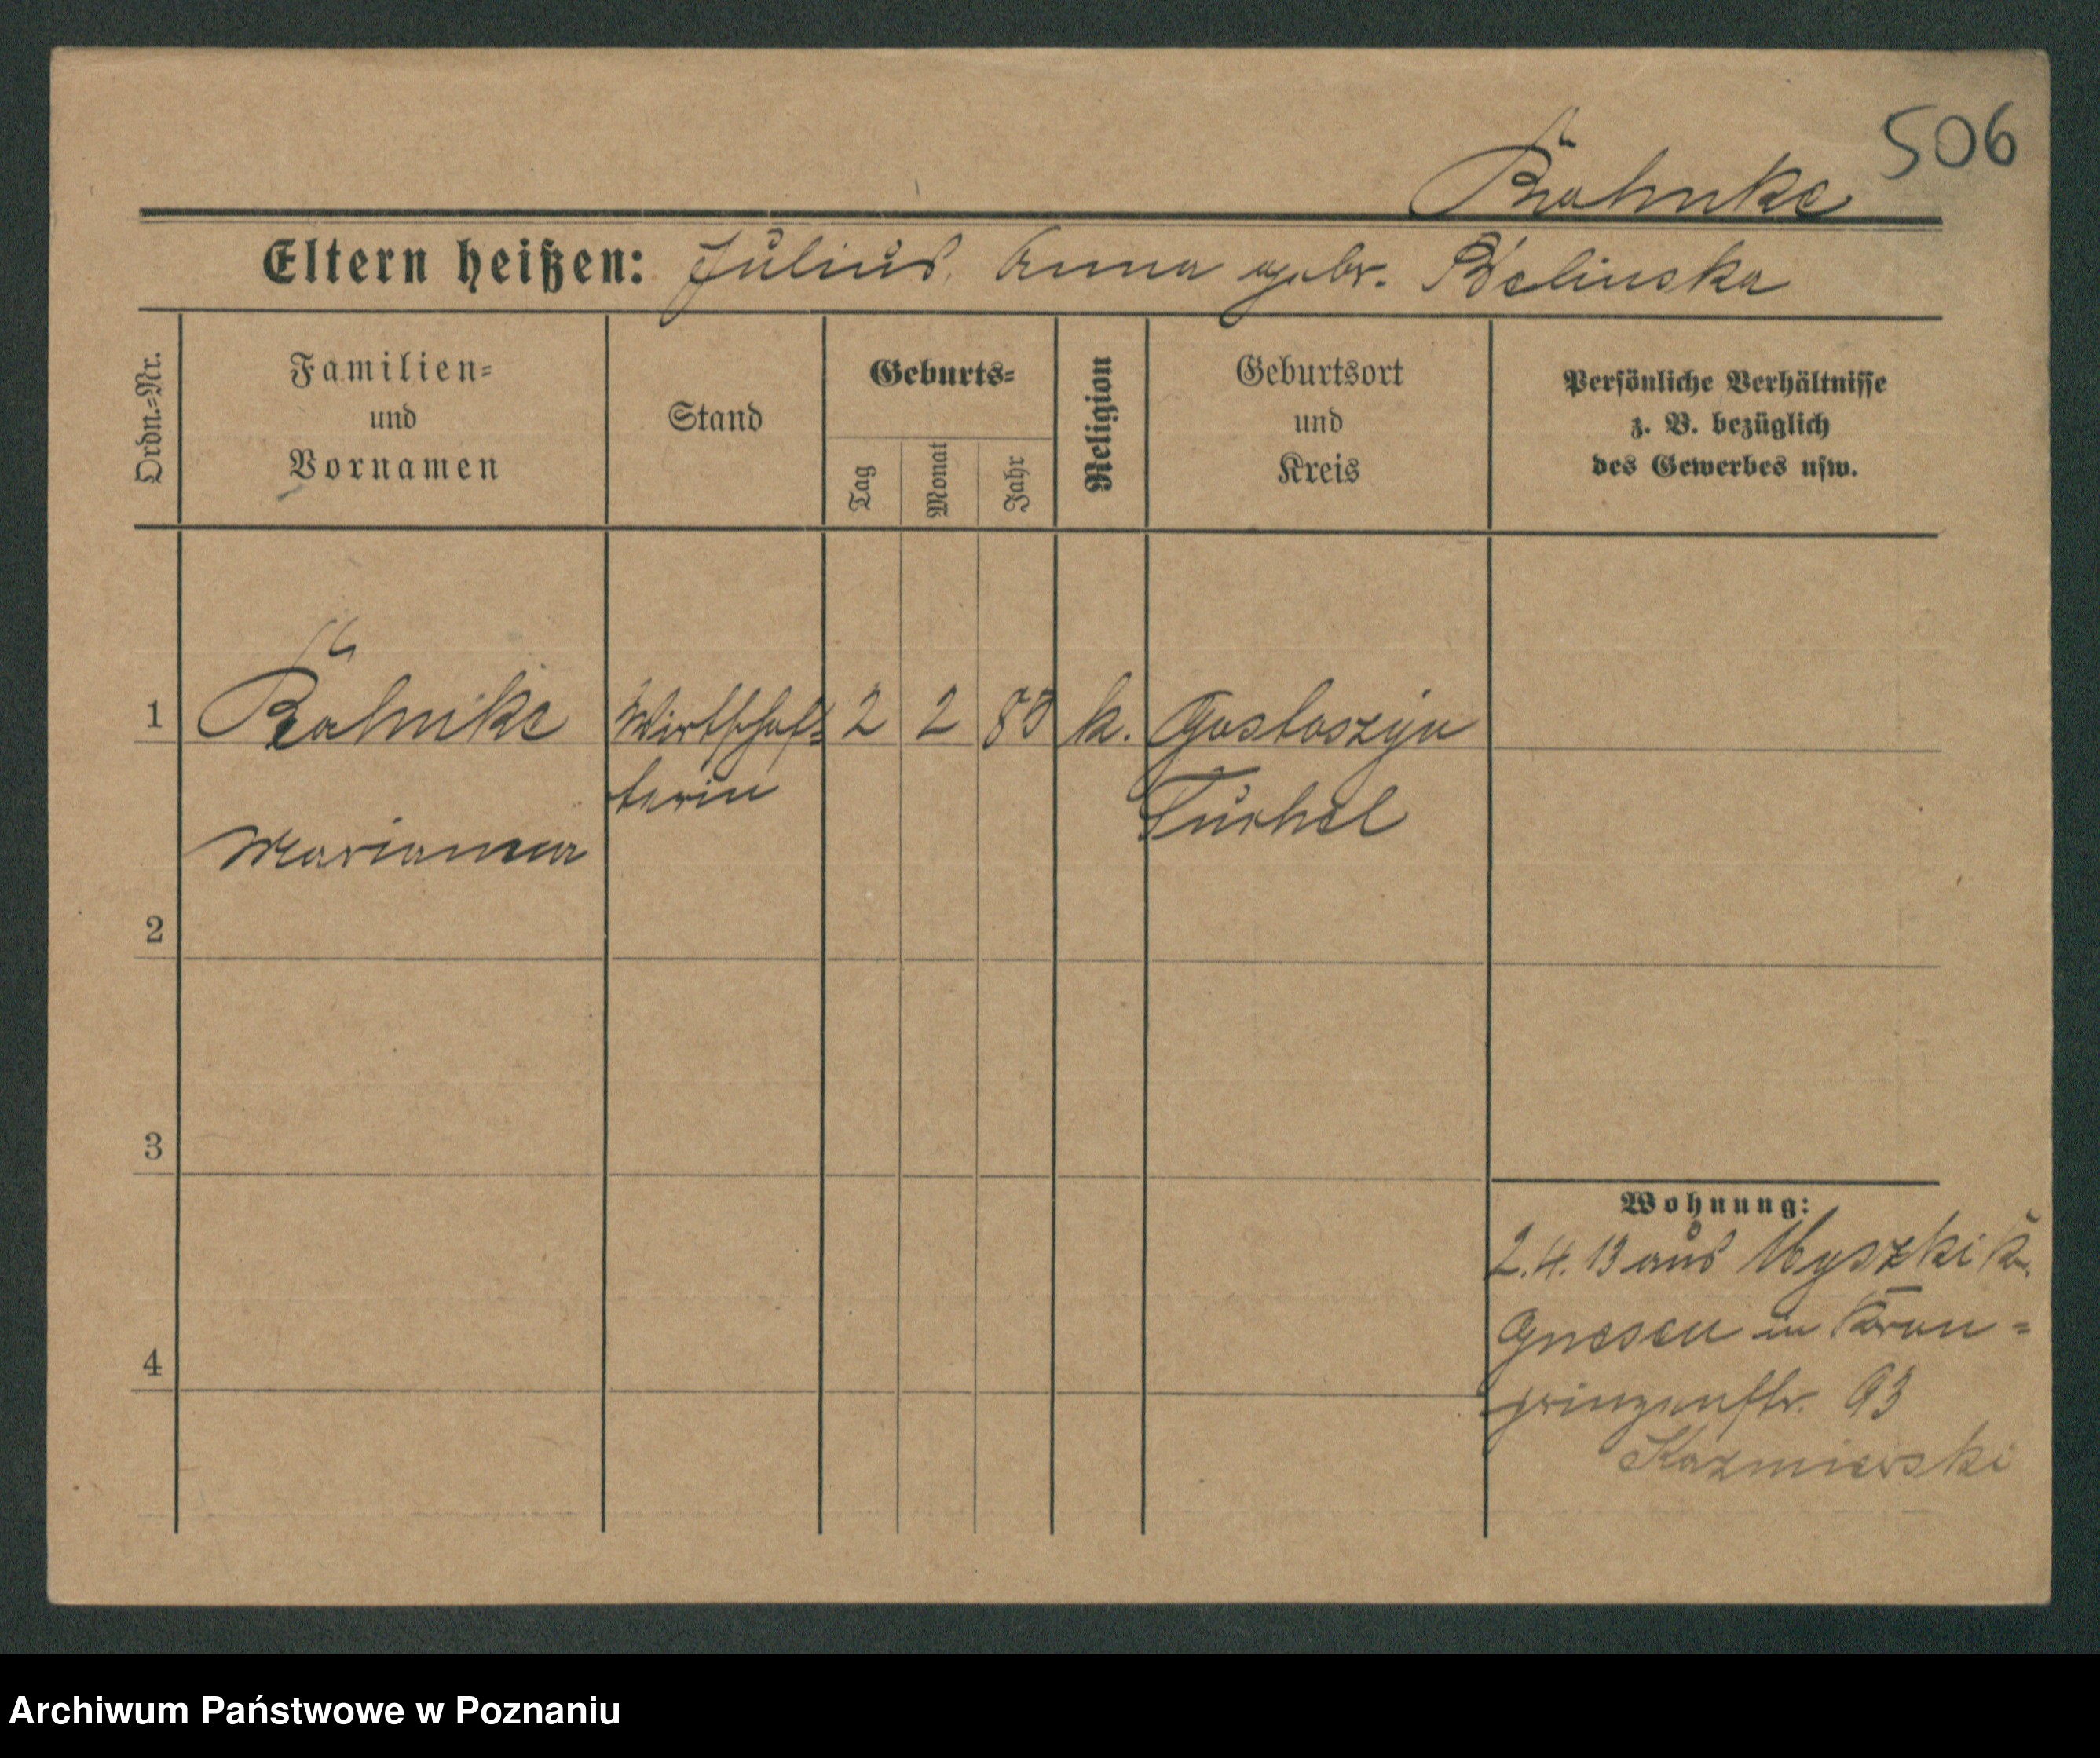 506
Bähnke
Eltern heißen: Julius, Anna gebr. Belinska
Ordn.-Nr.
Familien-
und
Vornamen
Stand
Geburts-
Tag
Monat
Jahr
Religion
Geburtsort
und
Kreis
Persönliche Verhältnisse
z. B. bezüglich
des Gewerbes usw.
1 Bähnke Wirthschaf- 2 2 83 k. Gostoszyn
terin Tuchel
Marianna
2
3
4
Wohnung:
2.4.13 aus Myszki K.
Gnesen in Kron-
prinzenstr. 93
Kazmierski
Archiwum Państwowe w Poznaniu